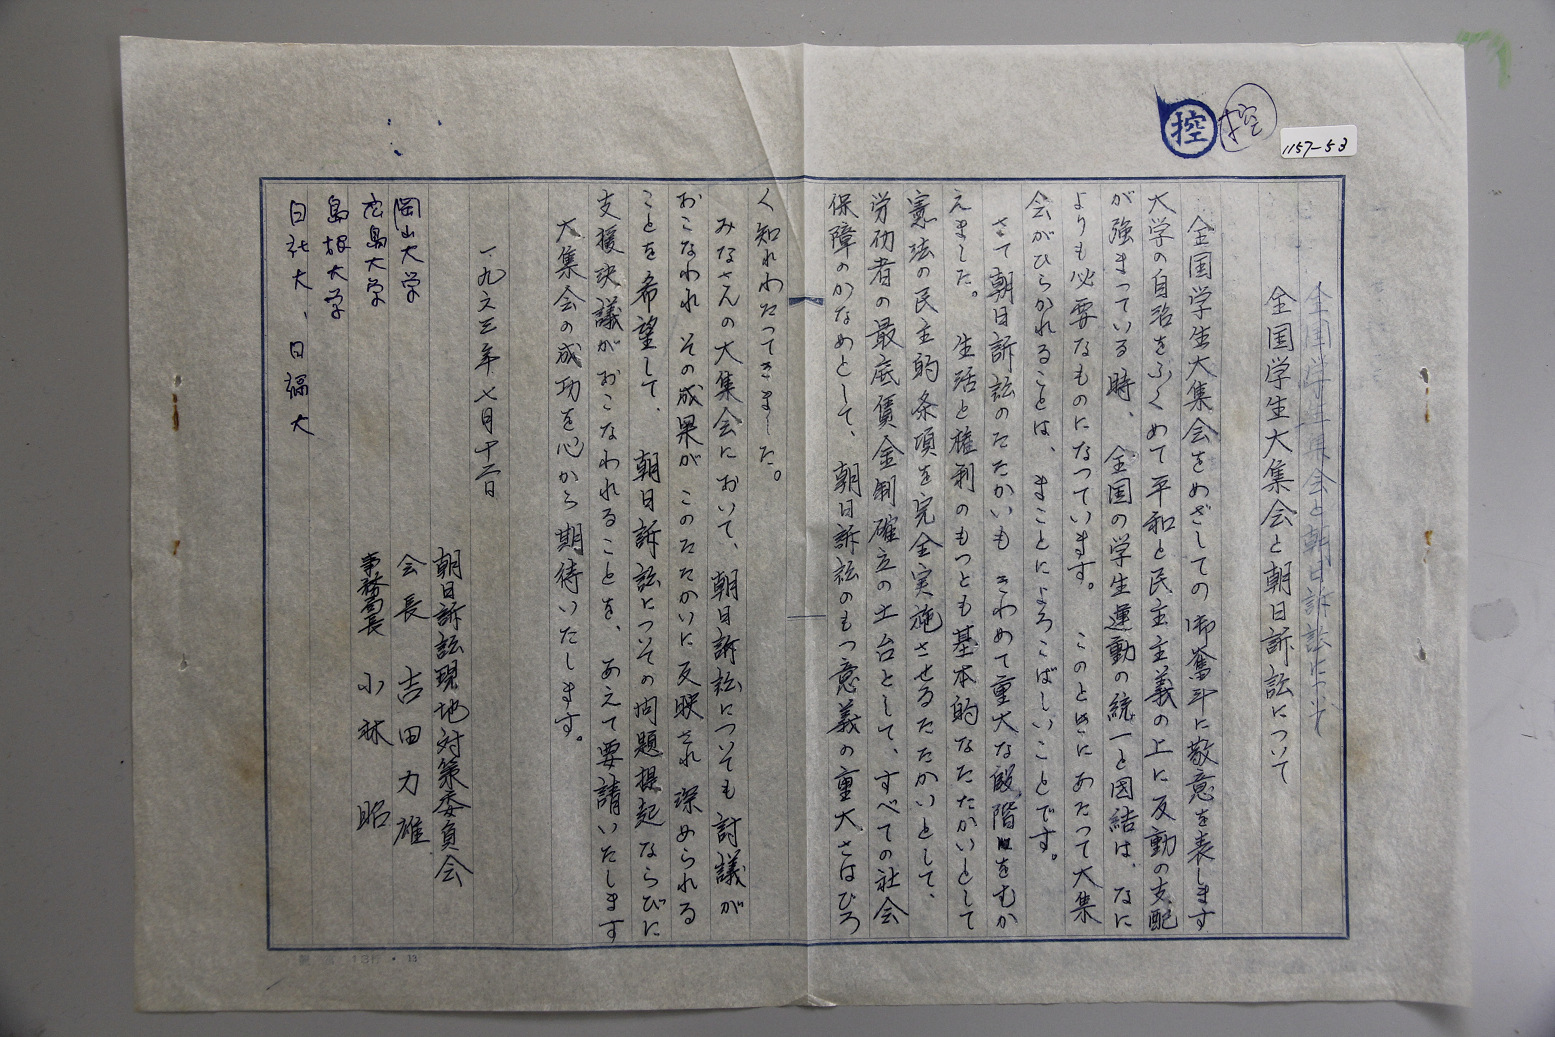 控
控
1157-53
全国学生集会と朝日訴訟
全国学生大集会と朝日訴訟について
全国学生大集会をめざしての御奮斗に敬意を表します
大学の自治をふくめて平和と民主主義の上に反動の支配
が強まっている時、全国の学生運動の統一と団結は、なに
よりも必要なものになっています。このときにあたって大集
会がひらかれることは、まことによろこばしいことです。
さて朝日訴訟のたたかいも きわめて重大な段階をむか
えました。生活と権利のもっとも基本的なたたかいとして
憲法の民主的条項を完全実施させるたたかいとして、
労仂者の最底賃金制確立の土台として、すべての社会
保障のかなめとして、朝日訴訟のもつ意義の重大さはひろ
く知れわたってきました。
みなさんの大集会において、朝日訴訟についても討議が
おこなわれ その成果が このたたかいに反映され 深められる
ことを希望して、朝日訴訟についての問題提起ならびに
支援決議がおこなわれることを、あえて要請いたします
大集会の成功を心から期待いたします。
一九六三年七月十二日
朝日訴訟現地対策委員会
会長 吉田力雄
事務局長 小林 昭
岡山大学
広島大学
島根大学
日社大、日福大
13